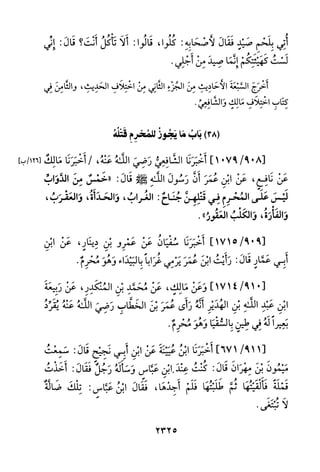 أُتِيَ بِلَحْمِ صَيْدٍ فَقَالَ لأَصْحَابِهِ: كُلُوا، قَالُوا: أَلَا تَأْكُلُ أَنْتَ؟ قَالَ: إِنِّي
لَسْتُ كَهَيْئَتِكُمْ إِنَّمَا صِيدَ مِنْ أَجْلِي.
أَخْرَجَ السَّبْعَةَ الأَحَادِيثَ مِنَ الْجُزْءِ الثَّانِي مِنِ اخْتِلَافِ الحَدِيثِ، والثَّامِنَ فِي
كِتَابِ اخْتِلَافِ مَالِكٍ وَالشَّافِعِيِّ.
(٣٨) بَابُ مَا يَجُوزُ لِلْمُحْرِمِ قَتْلُهُ
[١٠٧٩/٩٠٨] أَخْبَرَنَا الشَّافِعِيُّ رَضِيَ اللَّهُ عَنْهُ، / أَخْبَرَنَا مَالِكٌ [١٢٦/ب]
عَنْ نَافِعٍ، عَنْ ابْنِ عُمَرَ أَنَّ رَسُولَ اللَّهِ ﷺ قَالَ: «خَمْسٌ مِنَ الدَّوَابِّ
لَيْسَ عَلَى الْمُحْرِمِ فِي قَتْلِهِنَّ جُنَاحٌ: الغُرابُ، وَالحَدَأَةُ، وَالعَقْرَبُ،
وَالفَأْرَةُ، وَالكَلْبُ العَقُورُ».
[١٧١٥/٩٠٩] أَخْبَرَنَا سُفْيَانُ عَنْ عَمْرِو بْنِ دِينَارٍ، عَنْ ابْنِ
أَبِي عَمَّارٍ قَالَ: رَأَيْتُ ابْنَ عُمَرَ يَرْمِي غُرَاباً بِالبَيْدَاء وَهُوَ مُحْرِمٌ.
[١٧١٤/٩١٠] وَعَنْ مَالِكٍ، عَنْ مُحَمَّدِ بْنِ الْمُنْكَدِرِ، عَنْ رَبِيعَةَ
ابْنِ عَبْدِ اللَّهِ بْنِ الهُدَيْرِ أَنَّهُ رَأَى عُمَرَ بْنَ الخَطَّابِ رَضِيَ اللَّهُ عَنْهُ يُقَرِّدُ
بَعِيراً لَهُ فِي طِينٍ بِالسُّقْيَا وَهُوَ مُحْرِمٌ.
[٦٧١/٩١١] أَخْبَرَنَا ابْنُ عُيَيْنَةَ عَنْ ابْنِ أَبِي نَجِيْحٍ قَالَ: سَمِعْتُ
مَيْمُونَ بْنَ مِهْرَانَ قَالَ: كُنْتُ عِنْدَ ابْنِ عَبَّاسٍ وَسَأَلَهُ رَجُلٌ فَقَالَ: أَخَذْتُ
قَمْلَةً فَأَلْقَيْتُهَا ثُمَّ طَلَبْتُهَا فَلَمْ أَجِدْهَا، فَقَالَ ابْنُ عَبَّاسٍ: تِلْكَ ضَالَّةٌ
لَا تُبْتَغَى.
٢٣٢٥